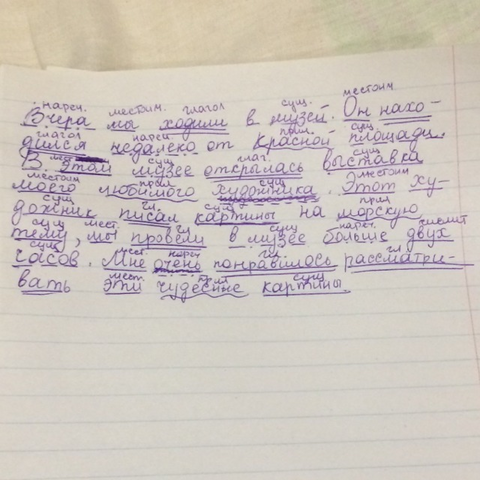 нареч. местоим. глагол сущ. местоим
Вчера мы ходили в музей. Он нахо-
глагол нареч прил. сущ.
дился недалеко от Красной площади.
сущ глаг. сущ
В этом музее открылась выставка
местоим прил сущ местоим
моего любимого художника. Этот ху-
сущ гл сущ прил
дожник писал картины на морскую
сущ мест. гл сущ нареч числит
тему, мы провели в музее больше двух
сущ мест. нареч гл. гл
часов. Мне очень понравилось рассматри-
мест прил сущ
вать эти чудесные картины.